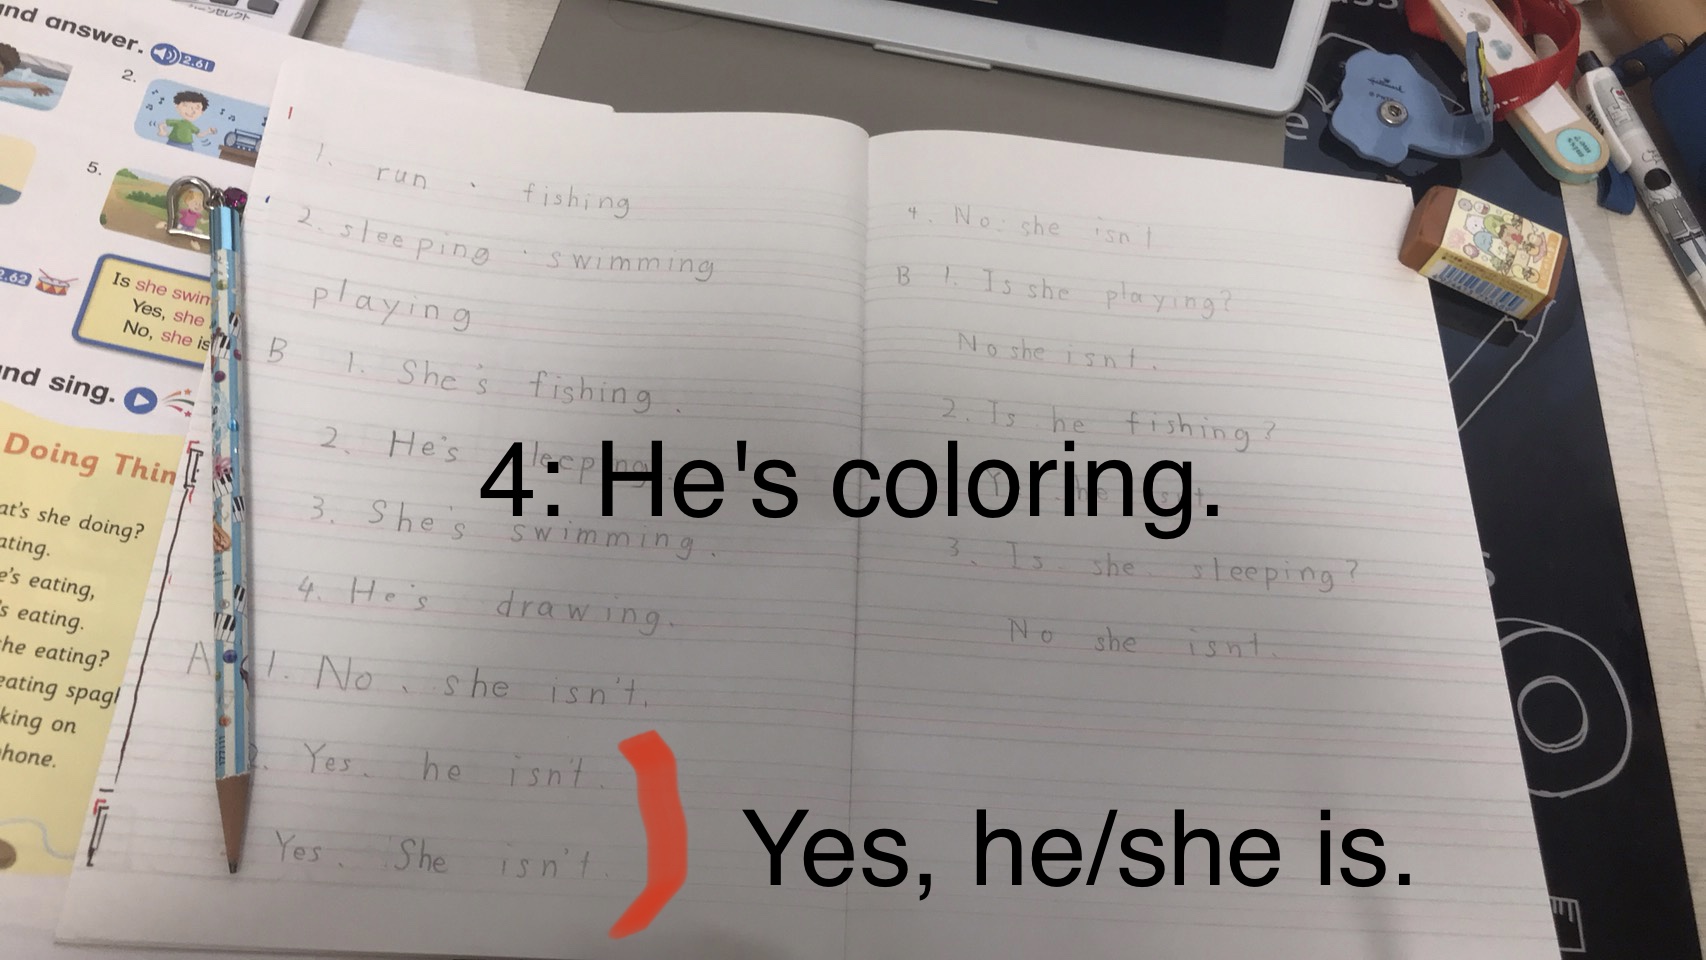 and answer.
2.61
2.
5.
2.62
Is she swim
Yes, she
No, she is
and sing.
Doing Thin
at's she doing?
ating.
e's eating,
's eating.
he eating?
eating spagh
king on
phone.
1. run . fishing
2. sleeping . swimming
playing
B 1. She's fishing.
2. He's sleeping.
3. She's swimming.
4. He's drawing.
A 1. No, she isn't.
2. Yes. he isn't.
Yes. She isn't.
4. No. she isn't
B 1. Is she playing?
No she isn't.
2. Is he fishing?
he isn't.
3. Is she sleeping?
No she isnt.
4: He's coloring.
Yes, he/she is.
Hallmark